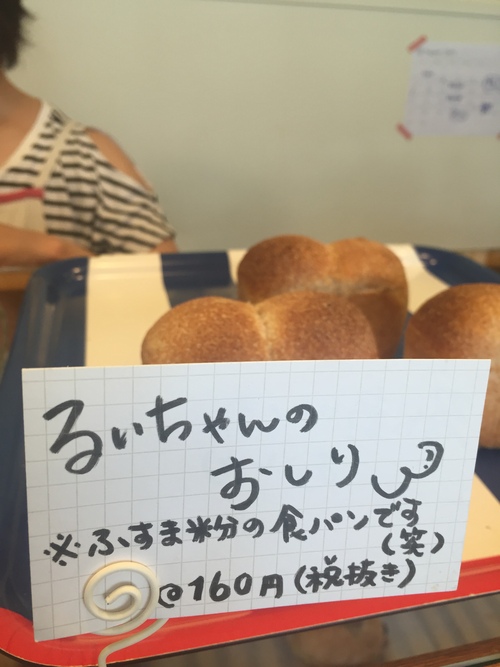 るぃちゃんの
おしり
※ふすま米分の食パンです
(笑)
@160円(税抜き)